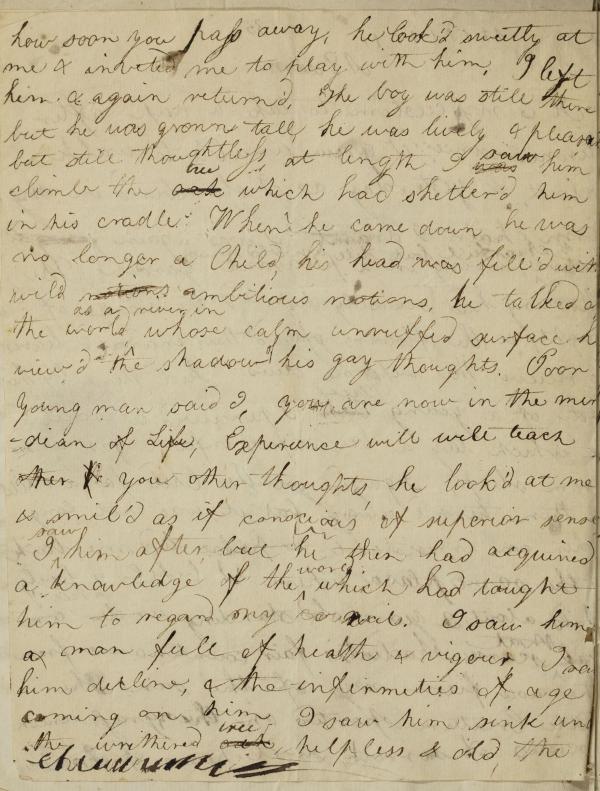 how soon you pass away, he look'd sweetly at
me & invited me to play with him, I left
him & again return'd, The boy was still there
but he was grown tall, he was lively & pleasa
but still thoughtless, at length I saw him
climb the tree which had shelter'd him
in his cradle. When he came down he was
no longer a Child, his head was fill'd with
wild notions ambitious notions, he talked o
as a river in
the world whose calm unruffed surface h
view'd the shadow his gay thoughts. Poor
young man said I, you are now in the meri
-dian of Life, Experience will will teach
other you other thoughts, he look'd at me
& smil'd as if conscious of superior sense
I saw him after, but he then had acquired
a knowledge of the world which had taught
him to regard my. I saw him
a man full of health & vigour I sa
him decline, & the infirmities of age
coming on him I saw him sink und
the writhered tree, helpless & old, the